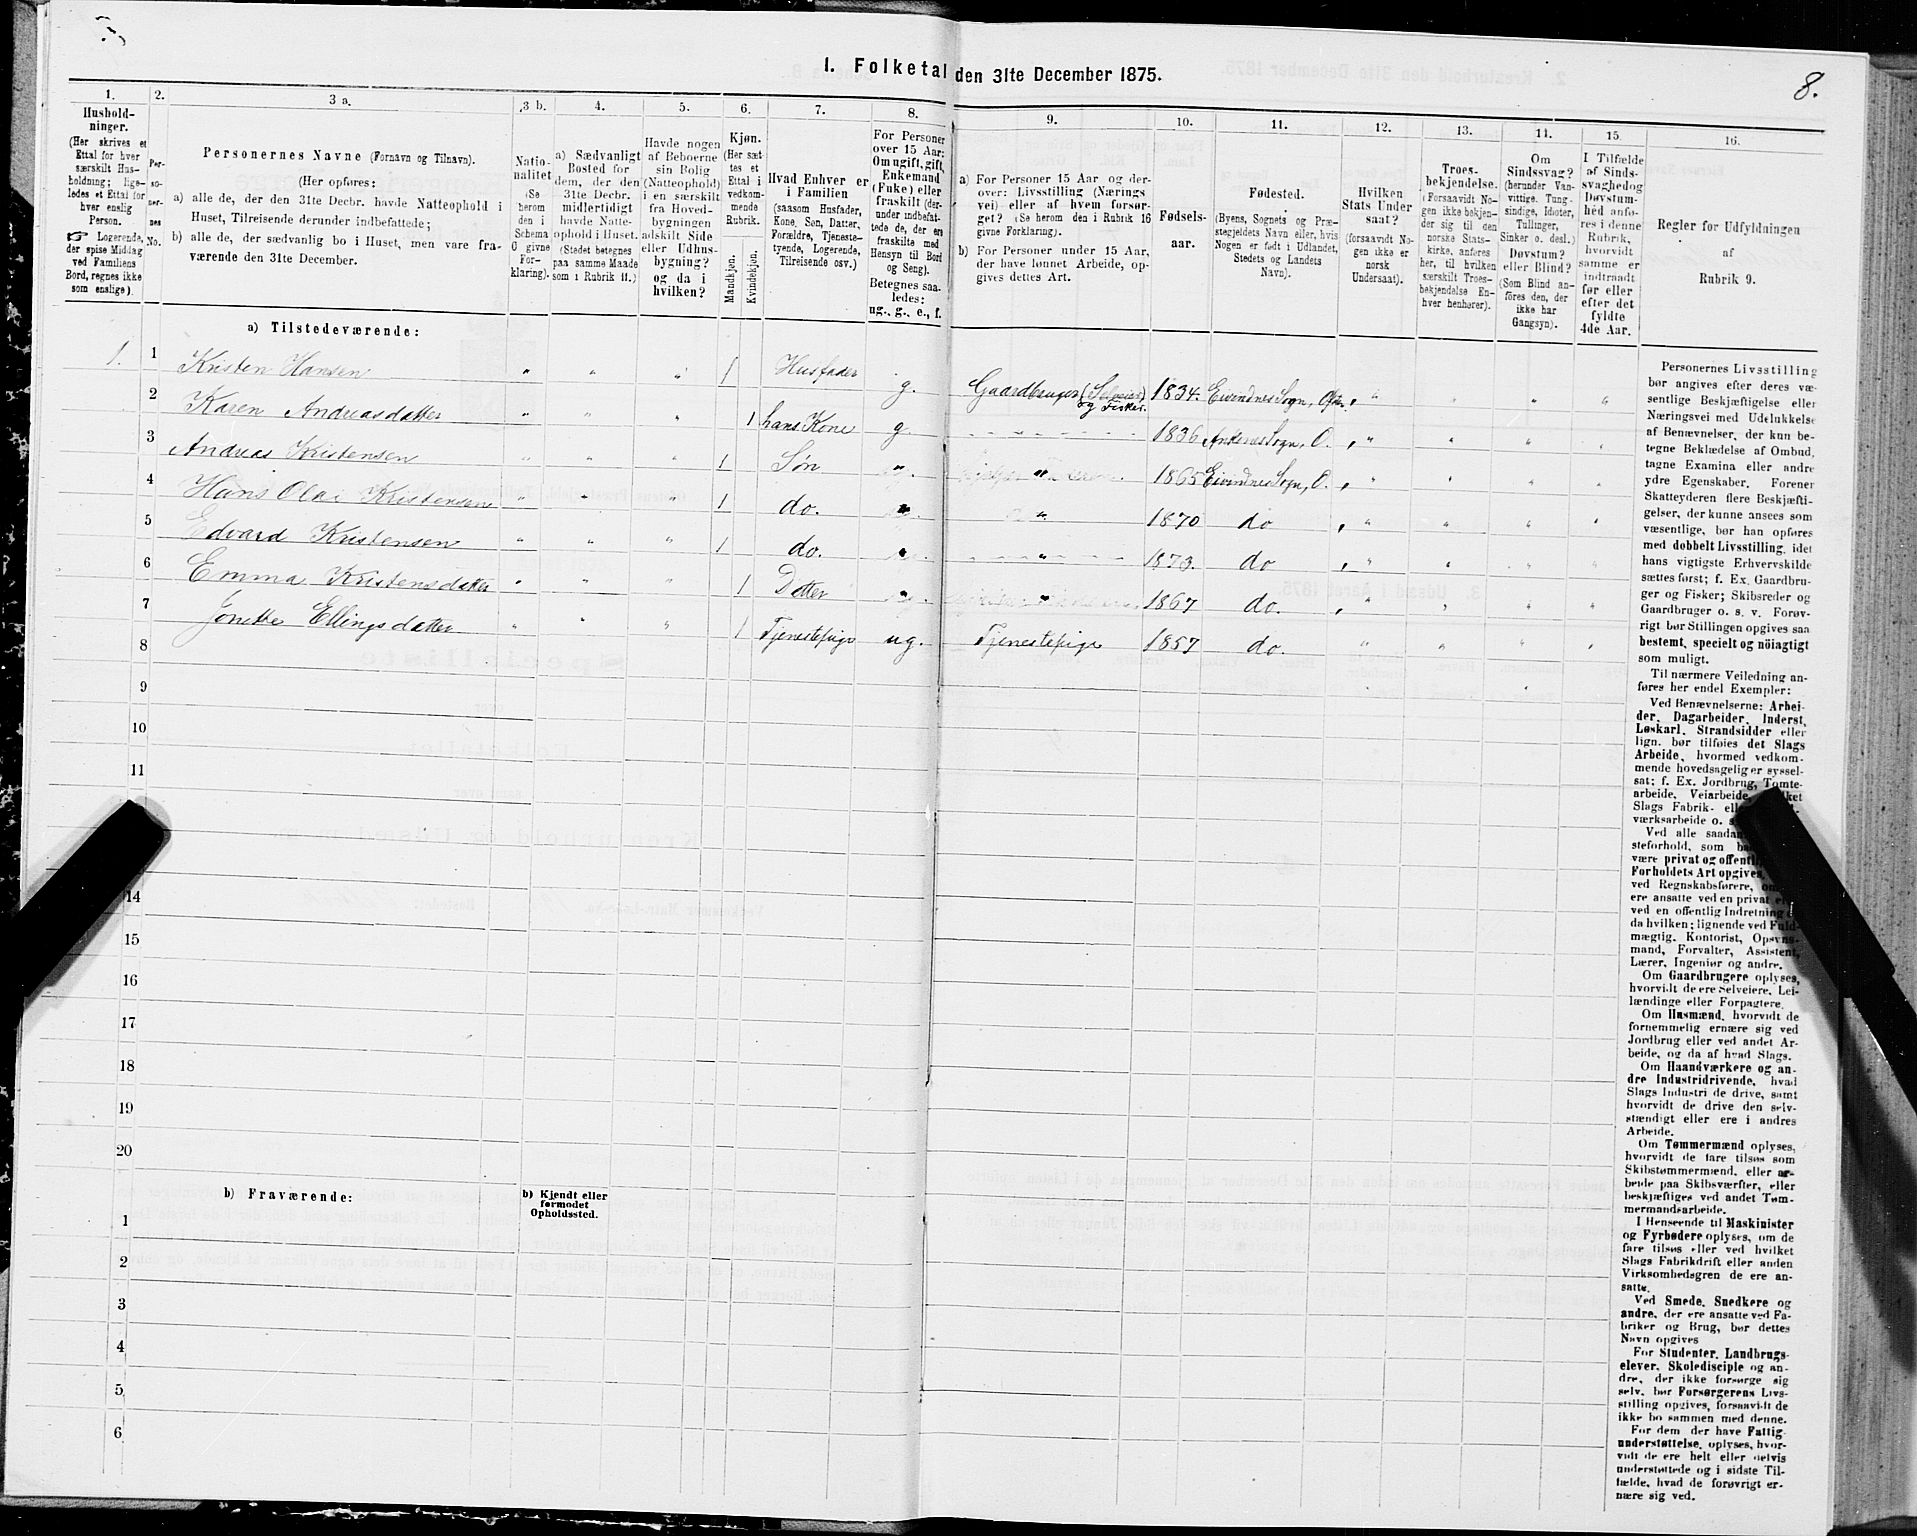 8.
1. Folketal den 31te December 1875.
1.
Hushold-
ninger.
(Her skrives et
Ettal for hver
særskilt Hus-
holdning; lige-
ledes et Ettal for
hver enslig
Person.
☞ Logerende,
der spise Middag
ved Familiens
Bord, regnes ikke
som enslige).
2.
Per-
so-
ner-
nes
No.
3 a.
Personernes Navne (Fornavn og Tilnavn).
(Her opføres:
a) alle de, der den 31te Decbr. havde Natteophold i
Huset, Tilreisende derunder indbefattede;
b) alle de, der sædvanlig bo i Huset, men vare fra-
værende den 31te December.
3 b.
Natio-
nalitet
(Se
herom
den i
Schema
O givne
For-
klaring).
4.
a) Sædvanligt
Bosted for
dem, der den
31te Decbr.
midlertidigt
havde Natte-
ophold i Huset.
(Stedet betegnes
paa samme Maade
som i Rubrik 11.)
5.
Havde nogen
af Beboerne
sin Bolig
(Natteophold)
i en særskilt
fra Hoved-
bygningen
adskilt Side
eller Udhus-
bygning?
og da i
hvilken?
6.
Kjøn.
(Her sæt-
tes et
Ettal i
vedkom-
mende
Rubrik.
Mandkjøn.
Kvindekjøn.
7.
Hvad Enhver er
i Familien
(saasom Husfader,
Kone, Søn, Datter,
Forældre, Tjeneste-
tyende, Logerende,
Tilreisende osv.)
8.
For Personer
over 15 Aar:
Om ugift, gift,
Enkemand
(Enke) eller
fraskilt (der-
under indbefat-
tede de, der ere
fraskilte med
Hensyn til Bord
og Seng).
Betegnes saa-
ledes:
ug., g., e., f.
9.
a) For Personer 15 Aar og der-
over: Livsstilling (Nærings
vei) eller af hvem forsør-
get? (Se herom den i Rubrik 16
givne Forklaring).
b) For Personer under 15 Aar,
der have lønnet Arbeide, op-
gives dettes Art.
10.
Fødsels-
aar.
11.
Fødested.
(Byens, Sognets og Præ-
stegjeldets Navn eller, hvis
Nogen er født i Udlandet,
Stedets og Landets
Navn).
12.
Hvilken
Stats Under
saat?
(forsaavidt No-
gen ikke er
norsk
Undersaat).
13.
Troes-
bekjendelse.
(Forsaavidt No-
gen ikke bekjen-
der sig til den
norske Stats-
kirke, anføres
her, til hvilken
særskilt Troes-
bekjendelse En-
hver henhører).
14.
Om
Sindssvag?
(herunder Van-
vittige, Tung-
sindige, Idioter,
Tullinger,
Sinker o. desl.)
Døvstum?
eller Blind?
(Som Blind an-
føres den, der
ikke har
Gangsyn).
15.
I Tilfælde
af Sinds-
svaghed og
Døvstum-
hed anfø-
res i denne
Rubrik,
hvorvidt
samme er
indtraadt
før eller
efter det
fyldte
4de Aar.
16.
Regler for Udfyldningen
af
Rubrik 9.
a) Tilstedeværende:
1. 1 Kristen Hansen " " " 1 Husfader g. Gaardbruger (Selveier) og Fisker. 1834. Eivindnes Sogn, Ofot. " " " "
2 Karen Andreasdatter " " " 1 hans Kone g. 1836 Ankenes Sogn, O. " " " "
3 Andreas Kristensen " " " 1 Søn " " 1865 Eivindnes Sogn, O. " " " "
4 Hans Olai Kristensen " " " 1 do. " 1870 do " " " "
5 Edvard Kristensen " " " 1 do. " 1873. do " " " "
6 Emma Kristensdatter " " " 1 Datter " " 1867 do. " " " "
7 Jonette Ellingsdatter " " " 1 Tjenestepige ug. Tjenestepige 1857 do. " " " "
8
9
10
11
14
15
16
17
18
19
20
b) Fraværende:
b) Kjendt eller
formodet
Opholdssted.
1
2
3
4
5
6
Personernes Livsstilling
bør angives efter deres væ-
sentlige Beskjæftigelse eller
Næringsvei med Udelukkelse
af Benævnelser, der kun be-
tegne Beklædelse af Ombud,
tagne Examina eller andre
ydre Egenskaber. Forener
Skatteyderen flere Beskjæfti-
gelser, der kunne ansees som
væsentlige, bør han opføres
med dobbelt Livsstilling, idet
hans vigtigste Erhvervskilde
sættes først; f. Ex. Gaardbru-
ger og Fisker; Skibsreder og
Gaardbruger o. s. v. Forøv-
rigt bør Stillingen opgives saa
bestemt, specielt og nöiagtigt
som muligt.
Til nærmere Veiledning an-
føres her endel Exempler:
Ved Benævnelserne: Arbei-
der, Dagarbeider, Inderst,
Løskarl, Strandsidder eller
lign. bør tilføies det Slags
Arbeide, hvormed vedkom-
mende hovedsagelig er syssel-
sat; f. Ex. Jordbrug, Tomte-
arbeide, Veiarbeide,
Slags Fabrik-
værksarbeide o. s.
Ved alle saadan
steforhold, som
være privat og offentl
Forholdets Art opgives,
ved Regnskabsførere,
ere ansatte ved en privat
ved en offentlig Indretning
da hvilken; lignende ved Fuld-
mægtig, Kontorist, Opsyns-
mand, Forvalter, Assistent,
Lærer, Ingeniør og andre.
Om Gaardbrugere oplyses,
hvorvidt de ere Selveiere, Lei-
lændinge eller Forpagtere.
Om Husmænd, hvorvidt de
fornemmelig ernære sig ved
Jordbrug eller ved andet Ar-
beide, og da af hvad Slags.
Om Haandværkere og an-
dre Industridrivende, hvad
Slags Industri de drive, samt
hvorvidt de drive den selv-
stændigt eller ere i andres
Arbeide.
Om Tømmermænd oplyses,
hvorvidt de fare tilsøs som
Skibstømmermænd, eller ar-
beide paa Skibsværfter, eller
beskjæftiges ved andet Tøm-
mermandsarbeide.
I Henseende til Maskinister
og Fyrbødere oplyses, om de
fare tilsøs eller ved hvilket
Slags Fabrikdrift eller anden
Virksomhedsgren de ere an-
satte.
Ved Smede, Snedkere og
andre, der ere ansatte ved Fa-
briker og Brug, bør dettes
Navn opgives
For Studenter, Landbrugs-
elever, Skoledisciple og an-
dre, der ikke forsørge sig
selv, bør Forsørgerens Livs-
stilling opgives, forsaavidt de
ikke bo sammen med denne.
For dem der have Fattig-
understøttelse, oplyses, hvor-
vidt de ere helt eller delvis
understøttede og i sidste Til-
fælde, hvad de forøvrigt er-
nære sig ved.